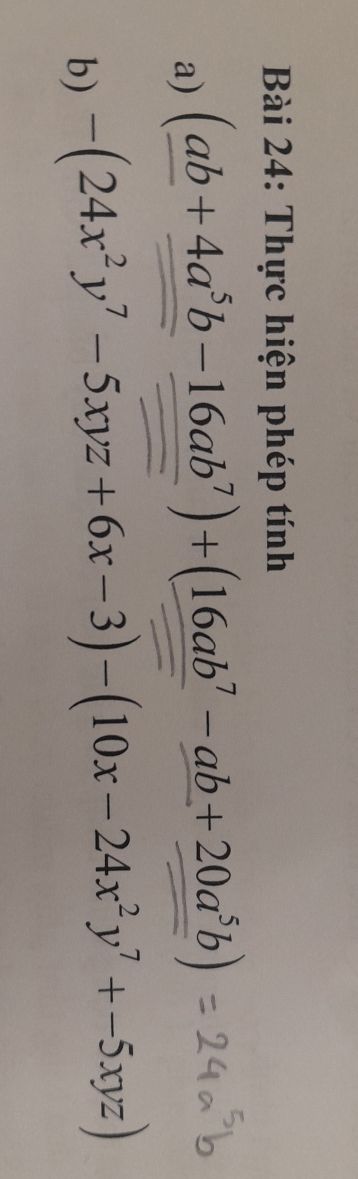 Bài 24: Thực hiện phép tính
a) (ab + 4a⁵b − 16ab⁷) + (16ab⁷ − ab + 20a⁵b) = 24a⁵b
b) −(24x²y⁷ − 5xyz + 6x − 3) − (10x − 24x²y⁷ + −5xyz)